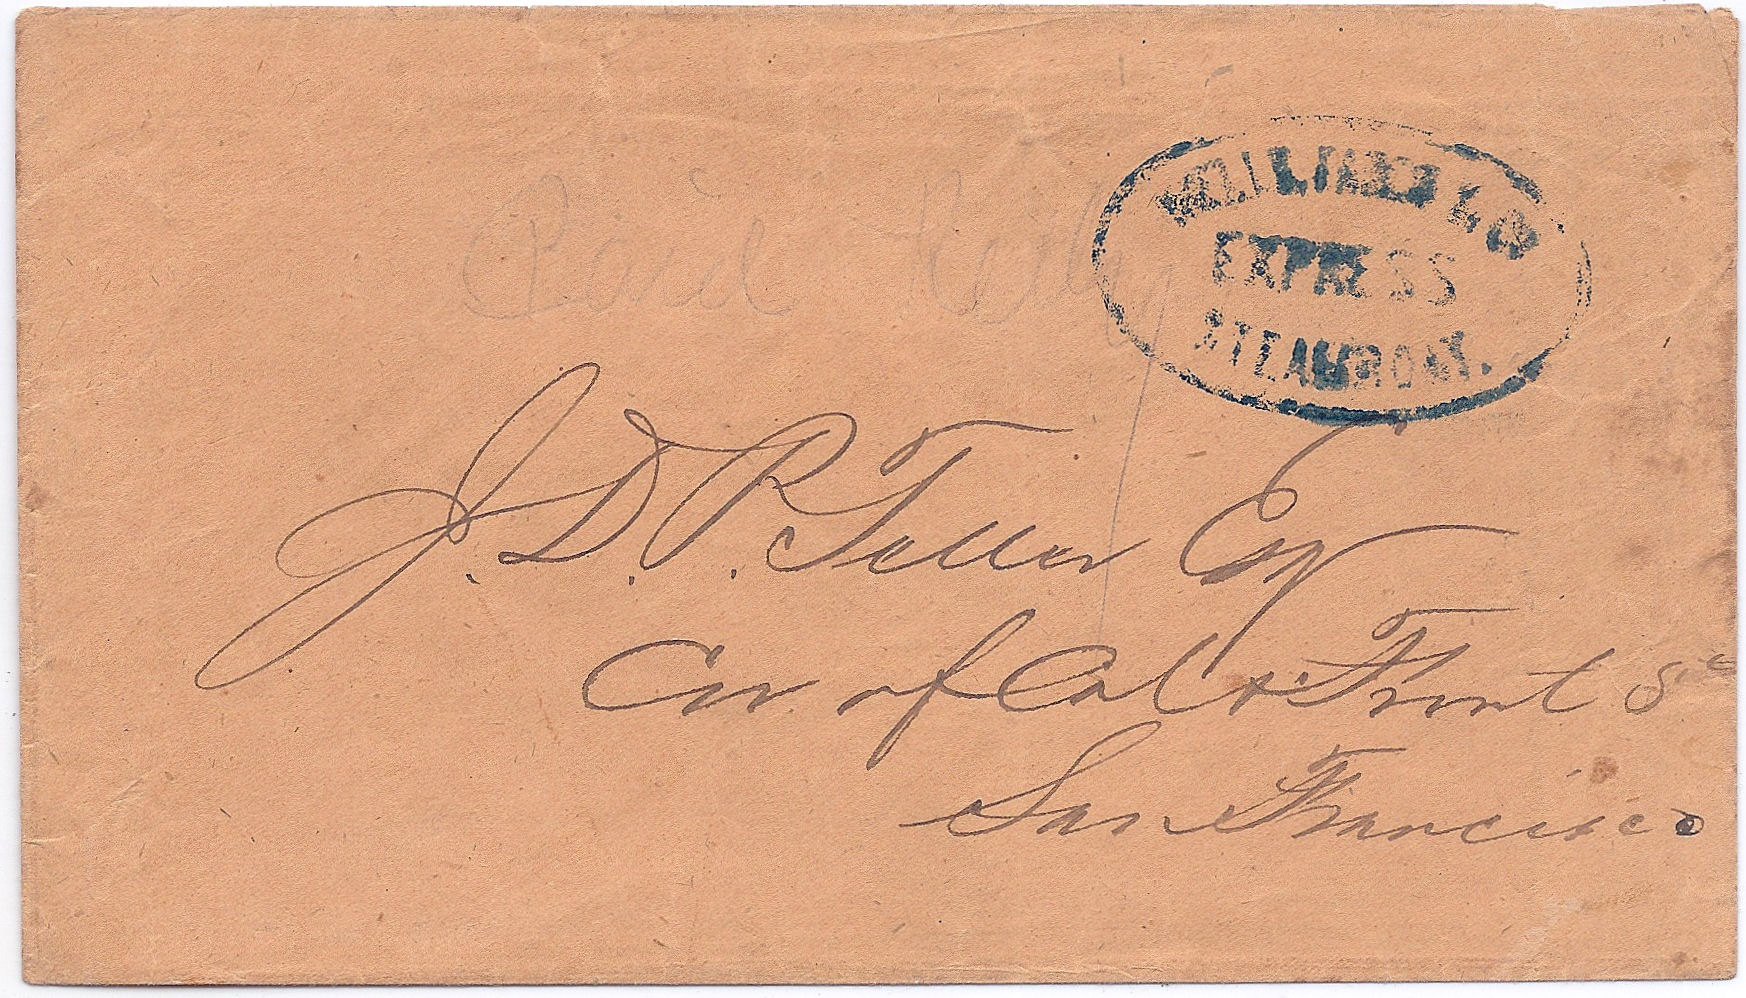 WILLIAMS & Co
EXPRESS
STEAMBOAT.
Paid
J. D. P. Teller Esqr
Cor of Cal & Front St
San Francisco